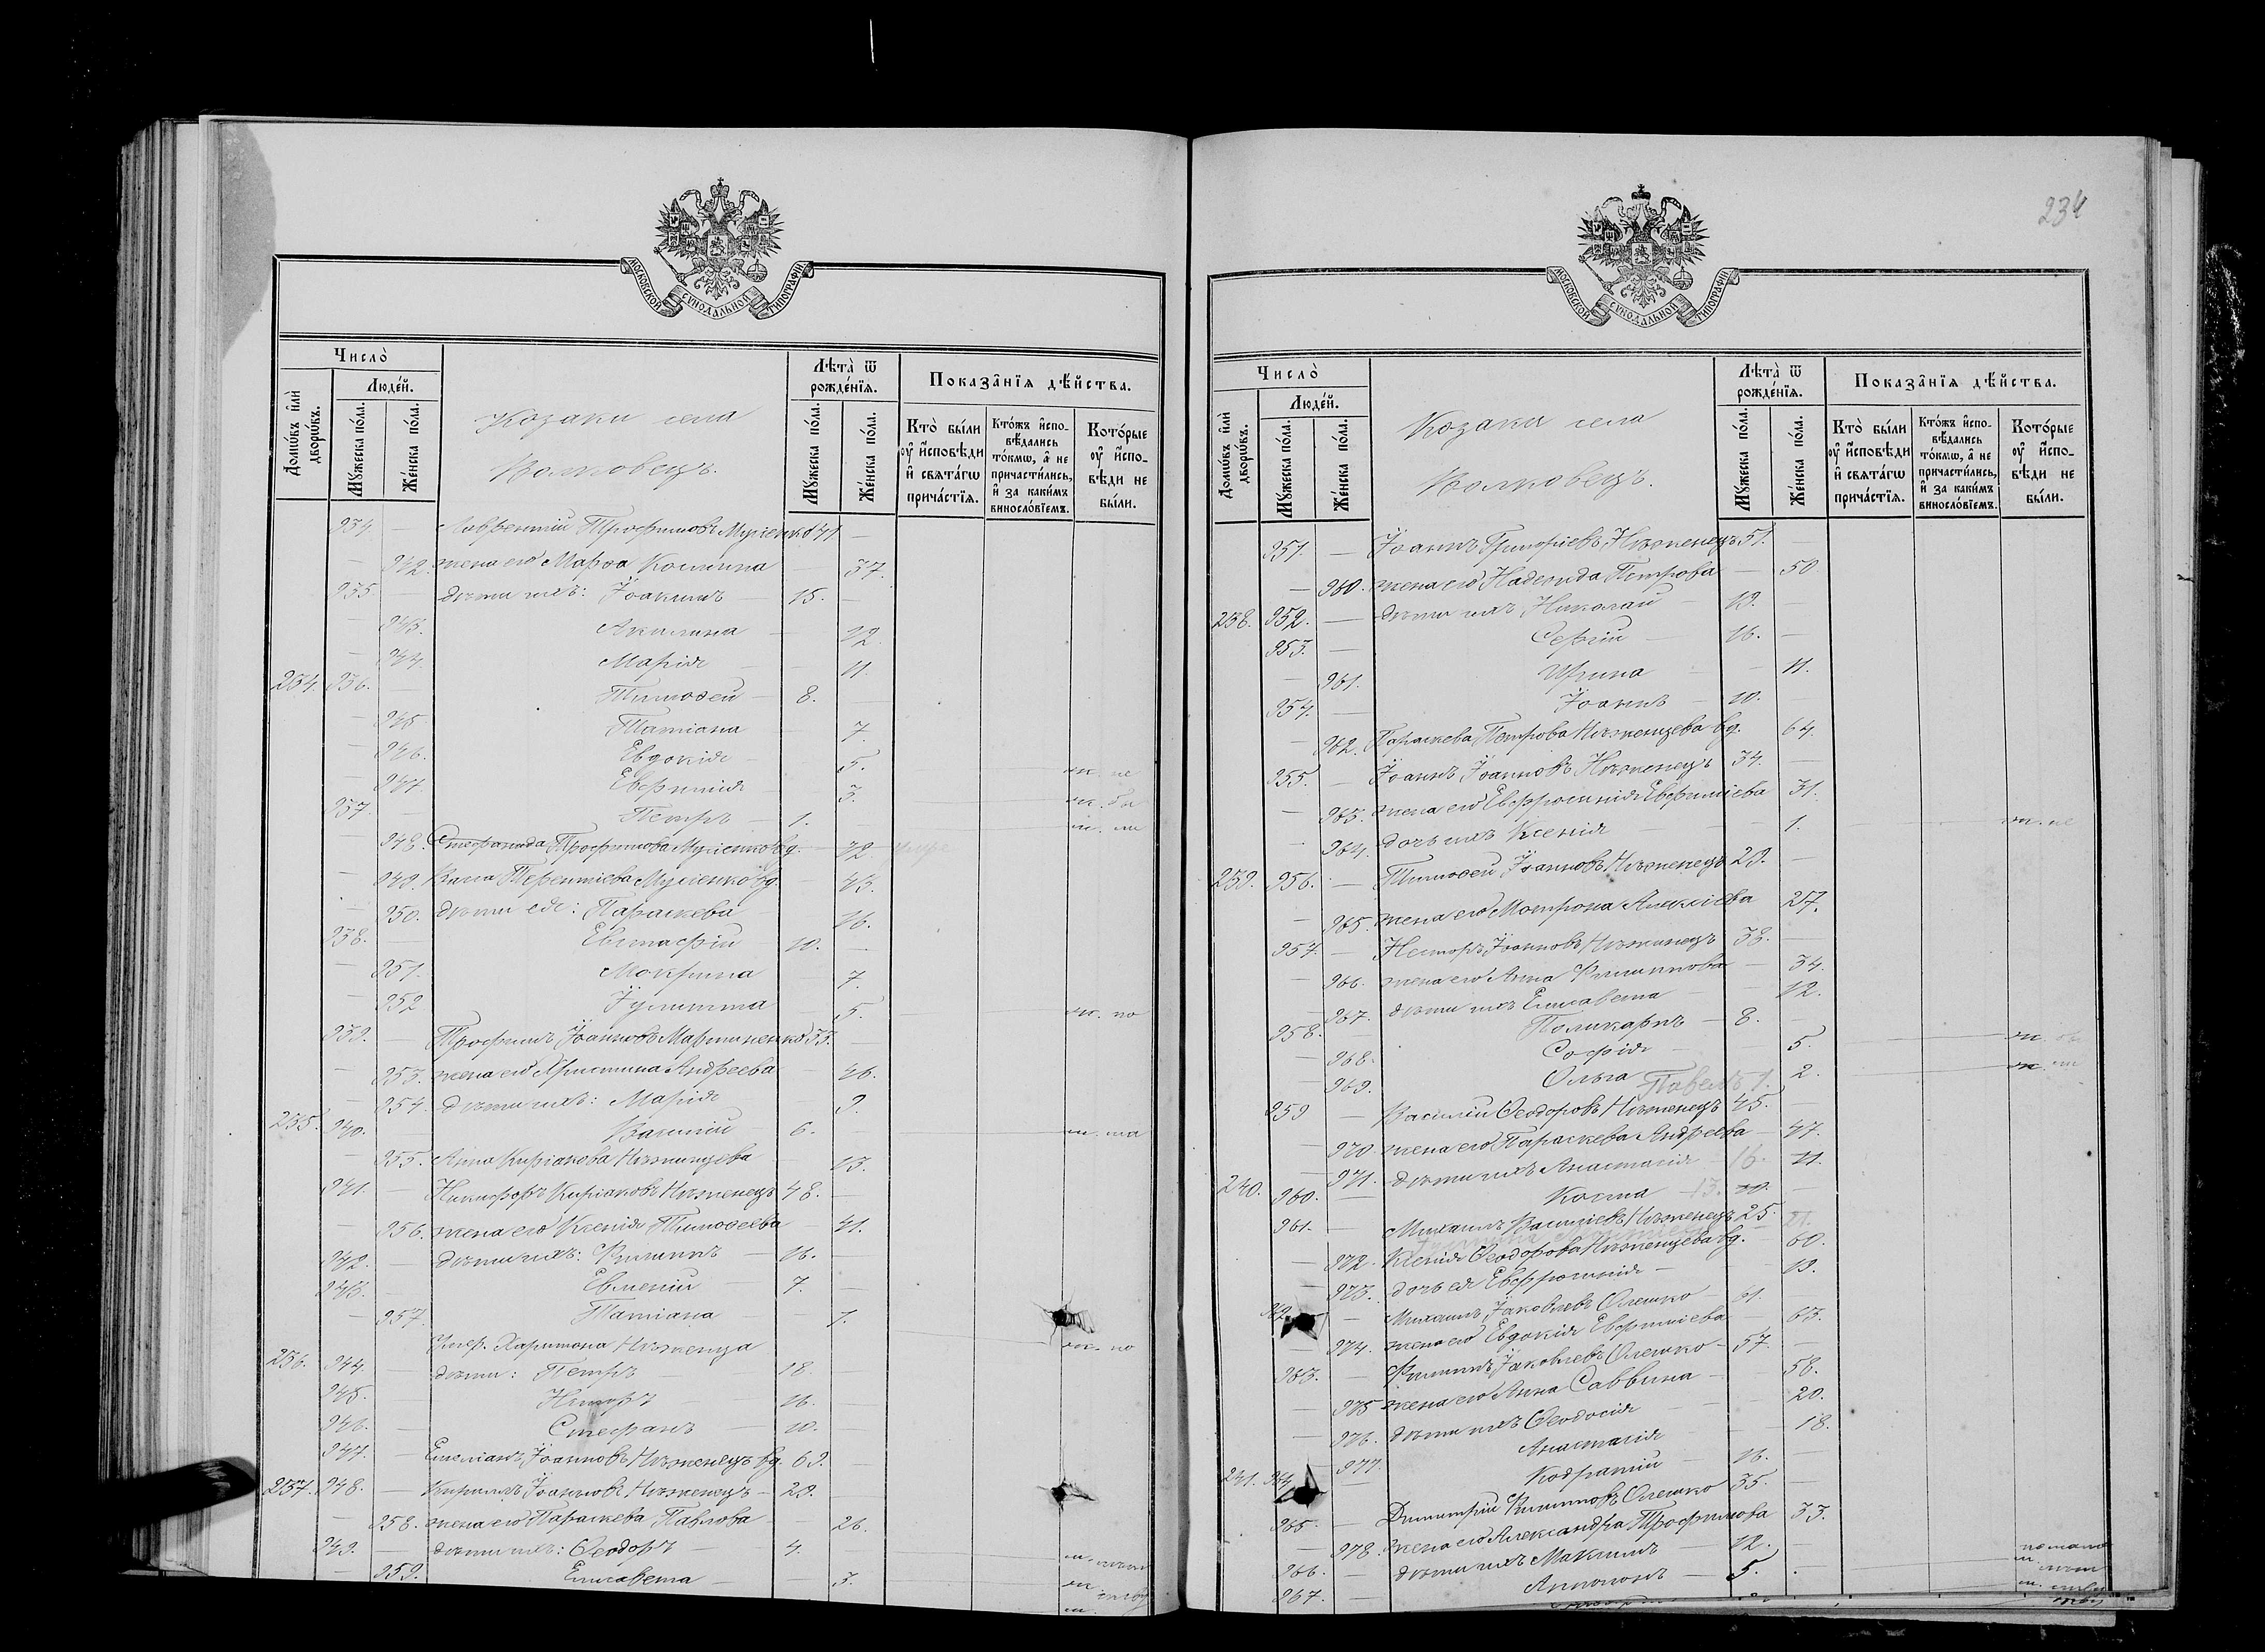 МОСКОВСКОЙ СУНОДАЛЬНОЙ ТИПОГРАФІИ
Число̀
Домѡ́въ и҆лѝ дворѡ́въ.
Люде́й.
Мꙋ́жеска по́ла.
Же́нска по́ла.
Козаки села
Волковецъ.
Лѣта̀ ѿ рожде́нїѧ.
Мꙋ́жеска по́ла.
Же́нска по́ла.
Показа̑нїѧ дѣ́йства.
Кто̀ бы́ли ᲂу҆ и҆́сповѣди и҆ свѧта́гѡ прича́стїѧ.
Кто́жъ и҆спо-вѣ́дались то́кмѡ, а҆ не причасти́лись, и҆ за каки́мъ винослові́емъ.
Кото́рые ᲂу҆ и҆́спо-вѣди не бы́ли.
934 — Лаврентій Трофимовъ Мусіенко 41 —
— 942. жена его Марѳа Космина — 37.
935 — дѣти ихъ: Іоакимъ — 15. —
— 943. Акилина — 12.
— 944. Марія — 11.
234. 936. — Тимоѳей — 8.
— 945 Татіана — 7.
— 946. Евдокія — 5.
— 947 Евфимія 3.
937. — Петръ — 1.
— 948. Стефанида Трофимова Мусіенко вд. — 72.
— 949. Васса Терентіева Мусіенко вд. — 43.
— 950. дѣти ея: Параскева 16.
938. — Евстафій — 10. —
— 951. Мокрина 7.
— 952 Іулитта 5.
939. — Трофимъ Іоанновъ Мартиненко 53. —
— 953. жена его Христина Андреева — 46.
— 954. дѣти ихъ: Марія 9.
235. 940. — Василій — 6.
— 955. Анна Киріакова Нѣженцева — 43.
941. — Никифоръ Киріаковъ Нѣженецъ 48. —
— 956. жена его Ксенія Тимоѳеева — 41.
942. — дѣти ихъ: Филиппъ — 16. —
943. — Евменій — 7. —
— 957. Татіана — 1.
Умер. Харитона Нѣженца
236. 944. — дѣти: Петръ 18. —
945. — Несторъ 16. —
946. — Стефанъ — 10. —
947. — Емеліанъ Іоанновъ Нѣженецъ вд. 69. —
237. 948. — Кириллъ Іоанновъ Нѣженецъ — 29. —
— 958. жена его Параскева Павлова — 26.
949. — дѣти ихъ: Ѳеодоръ — 4. —
— 959. Елисавета — — 3.
234
МОСКОВСКОЙ СУНОДАЛЬНОЙ ТИПОГРАФІИ
Число̀
Домѡ́въ и҆лѝ дворѡ́въ.
Люде́й.
Мꙋ́жеска по́ла.
Же́нска по́ла.
Козаки села
Волковецъ.
Лѣта̀ ѿ рожде́нїѧ.
Мꙋ́жеска по́ла.
Же́нска по́ла.
Показа̑нїѧ дѣ́йства.
Кто̀ бы́ли ᲂу҆ и҆́сповѣди и҆ свѧта́гѡ прича́стїѧ.
Кто́жъ и҆спо-вѣ́дались то́кмѡ, а҆ не причасти́лись, и҆ за каки́мъ винослові́емъ.
Кото́рые ᲂу҆ и҆́спо-вѣди не бы́ли.
951. — Іоаннъ Григоріевъ Нѣженецъ 51. —
— 960. жена его Надежда Петрова — 50
238. 952. — дѣти ихъ Николай — 19. —
953. — Сергій — 16. —
— 961. Ирина — 11.
954. — Іоаннъ — 10.
— 962. Параскева Петрова Нѣженцева вд. 64.
955. — Іоаннъ Іоанновъ Нѣженецъ 34. —
— 963. жена его Евфросинія Евфиміева 31.
— 964. дочь ихъ Ксенія — 1.
239. 956. — Тимоѳей Іоанновъ Нѣженецъ 29. —
— 965. жена его Мотрона Алексіева 27.
957. — Несторъ Іоанновъ Нѣженецъ 38. —
— 966. жена его Анна Филиппова — 34.
— 967. дѣти ихъ Елисавета — 12.
958. Поликарпъ — 8. —
— 968. Софія — 5.
— 969. Ольга Павелъ 1. 2.
959 — Василій Ѳеодоровъ Нѣженецъ 45. —
— 970. жена его Параскева Андреева — 47.
— 971. дѣти ихъ Анастасія — 16. 11.
240. 960. — Косма 13. 10. —
961. — Михаилъ Василіевъ Нѣженецъ 25. 21.
— 972. Ксенія Ѳеодорова Нѣженцева вд. — 60.
— 973. дочь ея Евфросинія — 19.
962 — Михаилъ Іаковлевъ Олешко — 61. —
— 974. жена его Евдокія Евфиміева 63.
963. — Филиппъ Іаковлевъ Олешко — 57. —
— 975 жена его Анна Саввина — 58.
— 976. дѣти ихъ Ѳеодосія — 20.
— 977. Анастасія 18.
241. 964 — Кодратій — 16. —
965. — Димитрій Филипповъ Олешко 35. —
— 978. жена его Александра Трофимова 33.
966. — дѣти ихъ Максимъ — 12.
967. — Антонъ — 5.